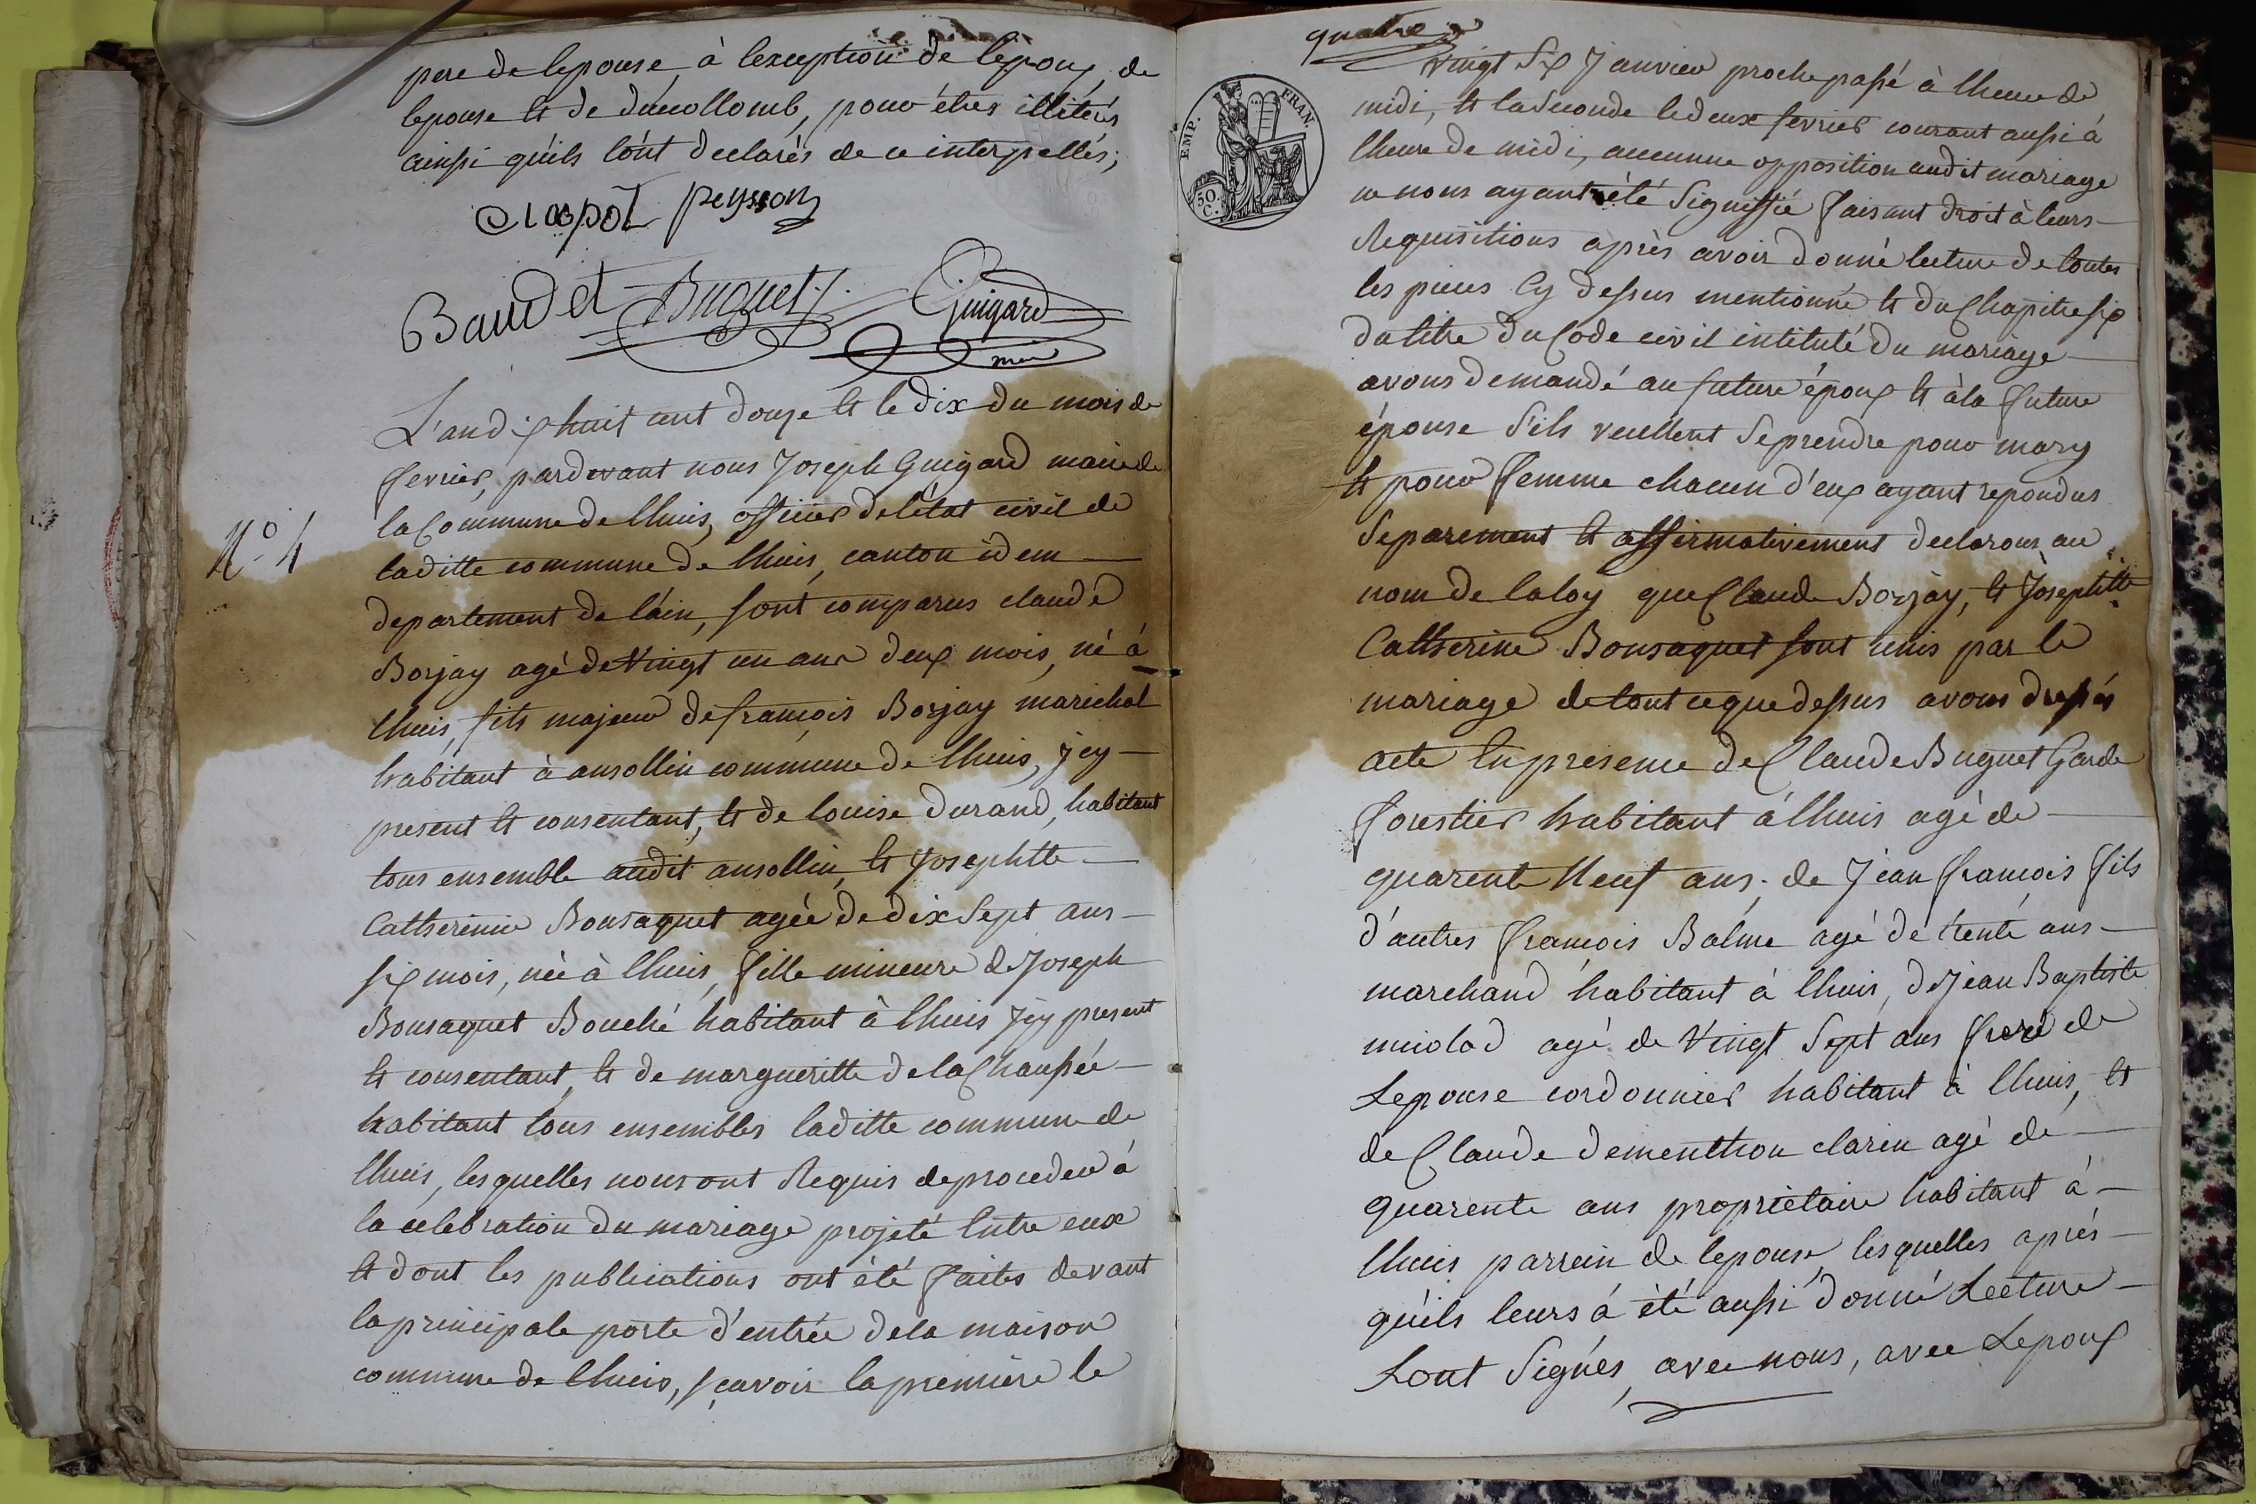 pere de lepouse, à lexception de lepoux, de
lepouse et de ducollomb, pour étres illiterés
ainssi quils lont declarés de ce interpellés;
clapot peysson
Baudet Buguet Guigard
maire
L'an dix huit cent douze et le dix du mois de
fevrier, pardevant nous Joseph Guigard maire de
la Commune de lhuis, officier deletat civil de
N° 4
laditte commune de lhuis, canton idem
departement de lain, sont comparus claude
Borjay agé de vingt un ans deux mois, né à
lhuis, fils majeur de françois Borjay marichal
habitant à ansollin commune de lhuis, jcy
present et consentant, et de louise durand, habitant
tous ensemble audit ansollin, et Josephtte
Catherinne Bonsaquet agée de dix Sept ans
six mois, née à lhuis, fille mineure de Joseph
Bonsaquet Bouché habitant à lhuis jcy present
et consentant, et de margueritte de la Chaussée
habitant tous ensembles laditte commune de
lhuis, lesquelles nous ont Requis de proceder à
la celebration du mariage projeté Entre eux
et dont les publications ont été faites devant
la principale porte d'entrée dela maison
commune de lhuis, sçavoir la premiere le
quatre
EMP. FRAN.
50.
C.
vingt Six Janvier proche passé à lheure de
midi, et la Seconde le deux fevrier courant aussi à
lheure de midi, aucunne opposition audit mariage
ne nous ayant été Signiffié faisant droit à leurs
Requisitions après avoir donné lecture de toutes
les pieces Cy dessus mentionné et du Chapitre six
du titre du Code civil intitulé du mariage
avons demandé au future époux et àla future
épouse S'ils veullent Se prendre pour mary
et pour femme chacun d'eux ayant repondus
Separement et affirmativement declarons au
nom de la loy que Claude Borjay, et Josephtte
Catherine Bonsaquet sont unis par le
mariage de tout ceque dessus avons dressés
acte En presence de Claude Buguet Garde
forestier habitant à lhuis agé de
quarente Neuf ans, de Jean françois fils
d'autres françois Balme agé de trente ans
marchand habitant à lhuis, de Jean Baptiste
miolad agé de vingt Sept ans frere de
Lepouse cordonnier habitant à lhuis, et
de Claude dementhon clarin agé de
quarente ans proprietaire habitant à
lhuis parrein de lepouse, lesquelles après
quils leurs à été aussi donné Lecture
Sont Signés, avec nous, avec Lepoux